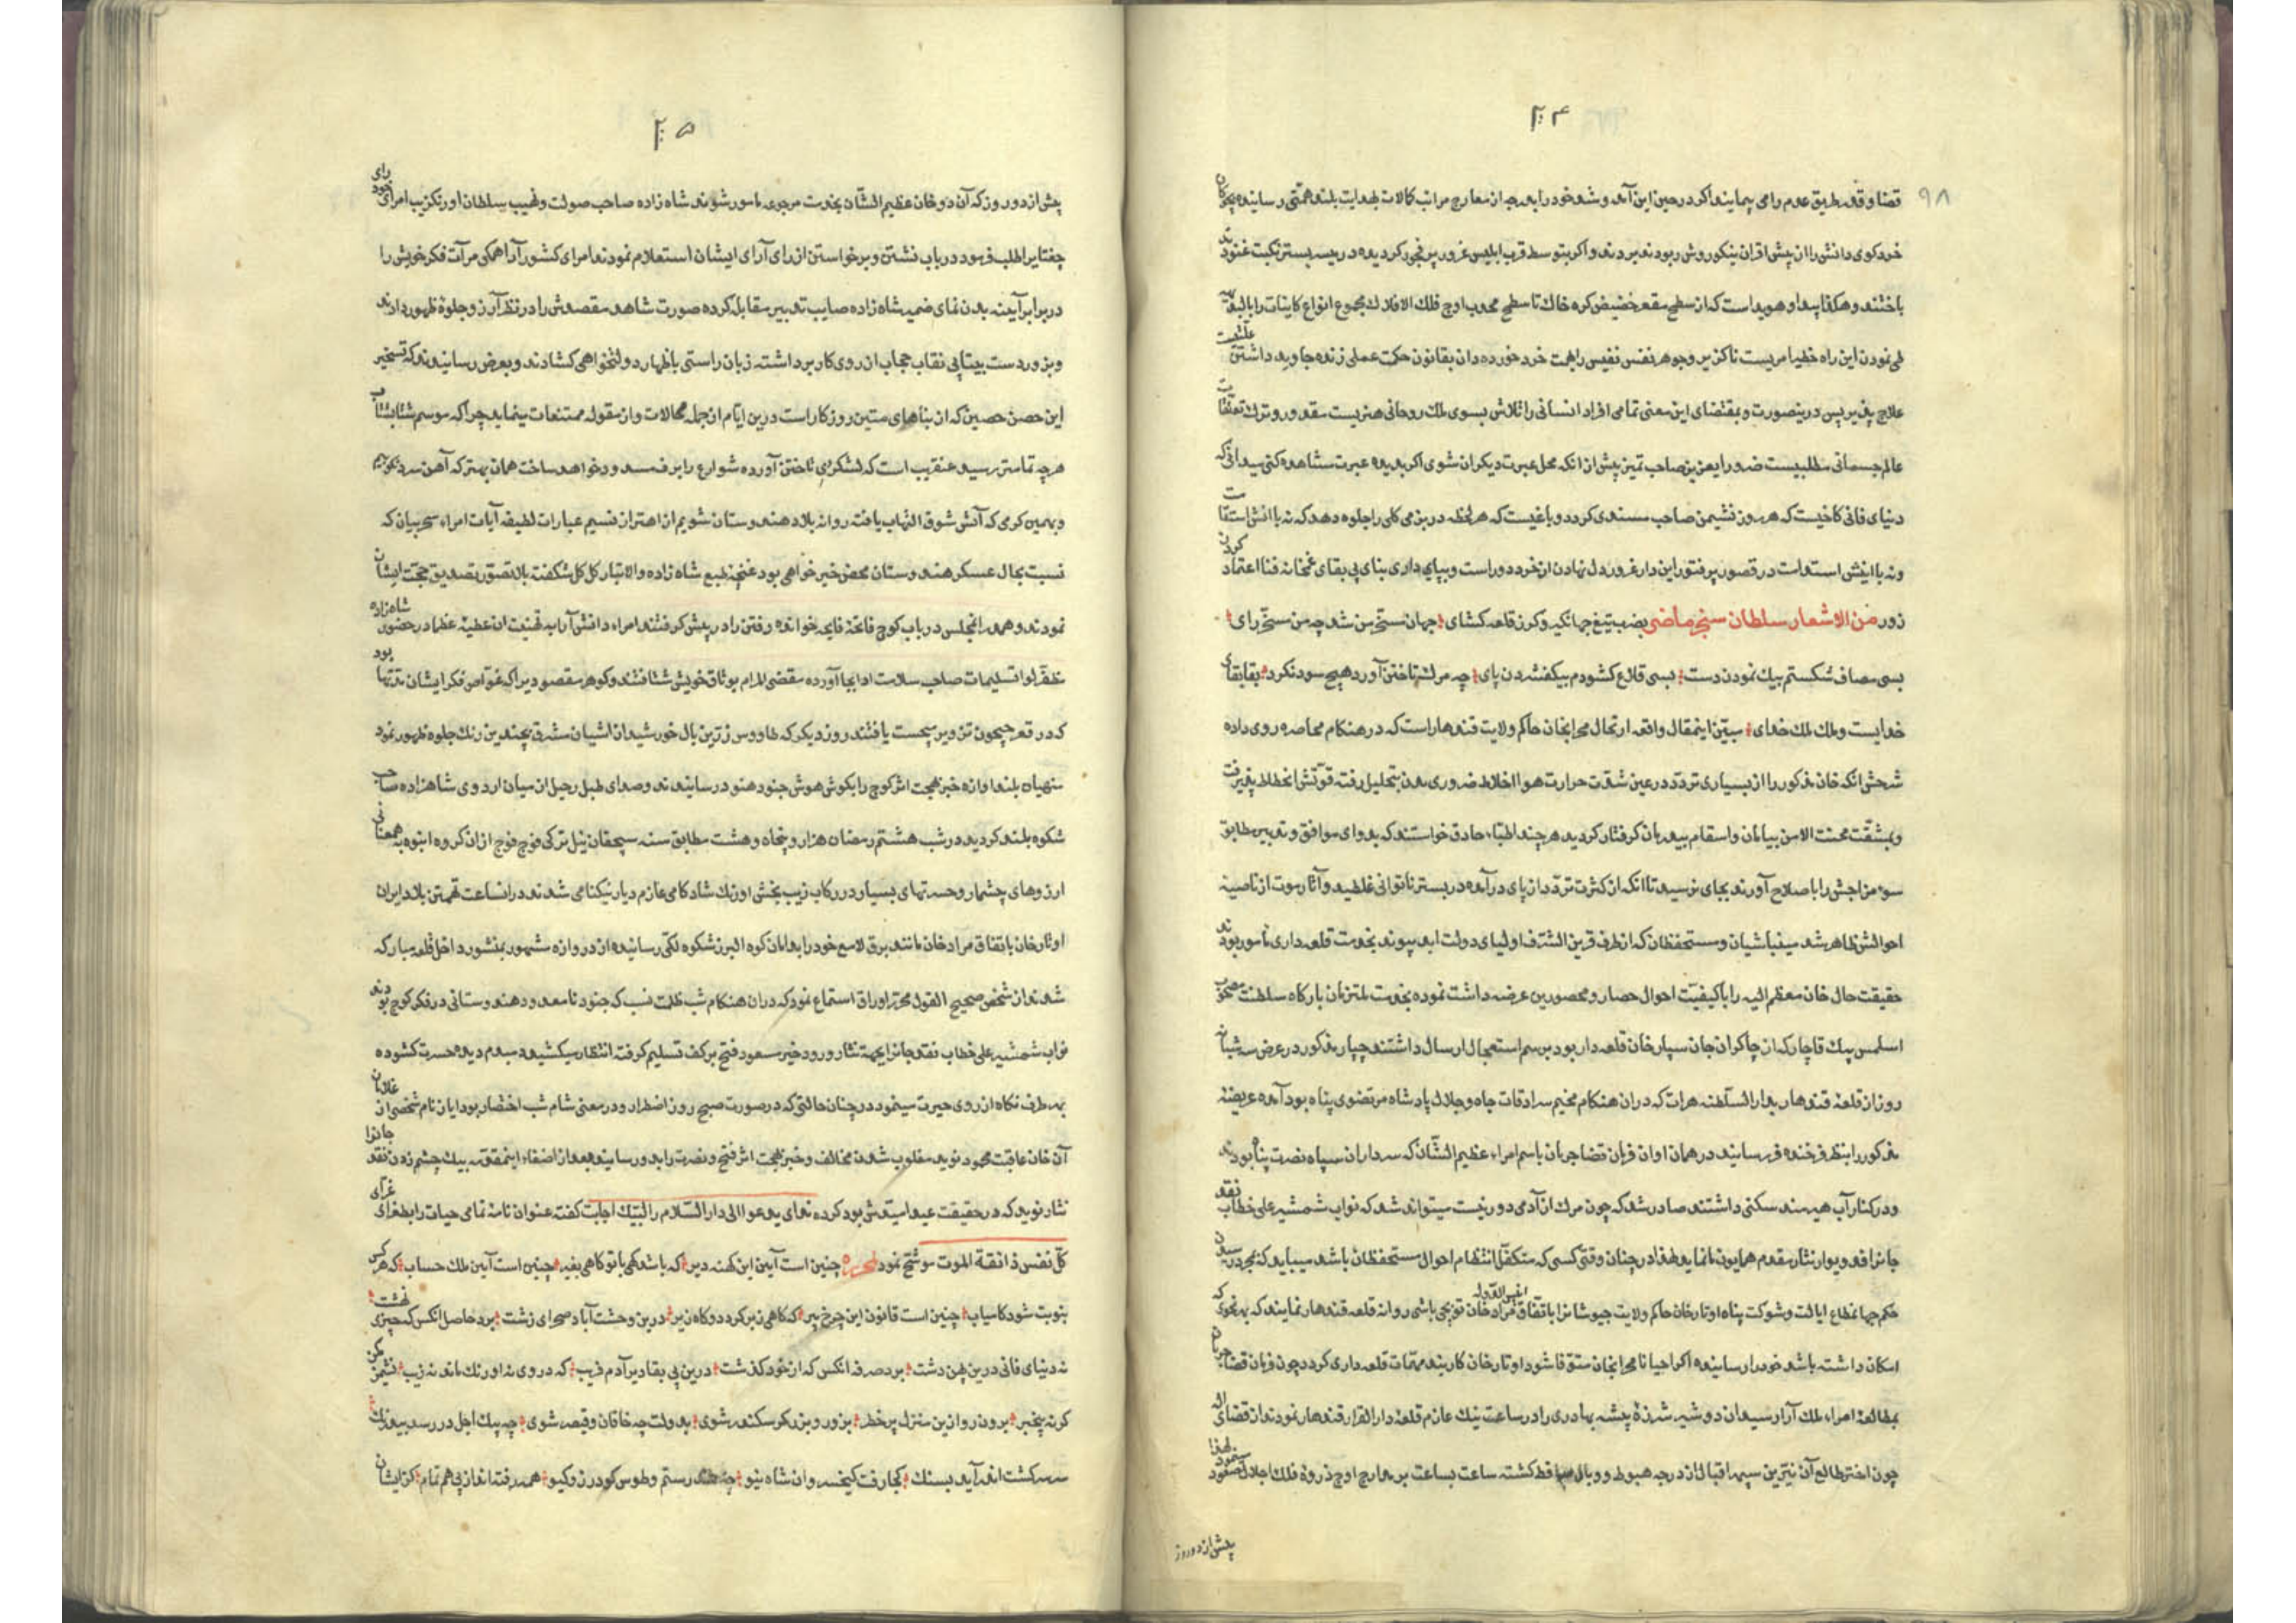 ۲۰۴
۹۸
قضا و قدر طریق عدم را می پیمایند اکر در حین این آمد و شد خود را بدرجه از معارج مراتب کمالات بهدایت بلند همتی رسانیده
خرد کوی دانش را از پیش اقران بنیکو روش ربودند بردند و اکر بتوسط قرب ابلیس غرور پر فجور کردیده در بستر نکبت غنودند
باختند و هکذا پیدا و هویداست که از سطح مقعر حضیض کره خاک تا سطح محدب اوج فلک الافلاک مجموع انواع کاینات را
طی نمودن این راه خطیر امریست ناکزیر و جوهر نفس نفیس را بجهت خرد خورده دان بقانون حکمت عملی زنده جاوید داشتن
علاج پذیر پس درینصورت و بمقتضای این معنی تمامی افراد انسانی را تلاش بسوی ملک روحانی هنریست مقدور و ترک تعلقات
عالم جسمانی مطلبیست ضرور ای عزیز صاحب تمیز پیش از انکه محل عبرت دیکران شوی اکر بدیده عبرت مشاهده کنی میدانی که
دنیای فانی کاخیست که هر روز نشیمن صاحب مسندی کردد و باغیست که هر لحظه در بزمی کلی را جلوه دهد که نه با انش استقامت
و نه با اینش استدامت در قصور پر فتور این دار غرور دل نهادن از خرد دور است و بپای داری بنای بی بقای غمخانه فنا اعتماد کردن
زور من الاشعار سلطان سنجر ماضی بضرب تیغ جهانکیر و کرز قلعه کشای جهان مسخر من شد چو من مسخر رای
بسی مصاف شکستم بیک نمودن دست بسی قلاع کشودم بیک فشردن پای چه مرک تاختن آورد هیچ سود نکرد بقا بقای
خدایست و ملک ملک خدای مبین اینمقال واقعه ارتحال محرابخان حاکم ولایت قندهار است که در هنکام محاصره روی داده
شرحش انکه خان مذکور را از بسیاری تردد در عین شدت حرارت هوا اخلاط ضروری بدن بتحلیل رفته قوتش انحطاط پذیرفت
و بمشقت محنت الامن بیامان و اسقام بیدرمان کرفتار کردید هر چند اطباء حاذق خواستند که بدوای موافق و تدبیر مطابق
سوء مزاجش را باصلاح آورند بجای نرسید تا انکه از کثرت تردد از پای در آمده در بستر ناتوانی غلطید و آثار موت از ناصیه
احوالش ظاهر شد مینباشیان و مستحفظان که از طرف قرین الشرف اولیای دولت ابد پیوند بخدمت قلعه داری مامور بودند
حقیقت حال خان معظم الیه را با کیفیت احوال حصار و محصورین عرضه داشت نموده بخدمت ملتزمان بارکاه سلطنت مصحوب
اسلمس بیک قاجار که از چاکران جان سپار خان قلعه دار بود برسم استعجال ارسال داشتند چپار مذکور در عرض سه شبانه
روز از قلعه قندهار بدار السلطنه هرات که در ان هنکام مخیم سرادقات جاه و جلال پادشاه مرتضوی پناه بود آمده عریضه
مذکور را بنظر فرخنده فر رسانید در همان اوان فرمان قضا جریان باسم امراء عظیم الشان که سرداران سپاه نصرت پناه بودند
و در کنار آب هیرمند سکنی داشتند صادر شد که چون مرک از آدمی دور نیست میتواند شد که نواب شمشیر علی خطاب نقد
جانرا فدویوار نثار مقدم همایون ما نماید لهذا در چنان وقتی کسی که متکفل انتظام احوال مستحفظان باشد میباید که بمجرد رسیدن
حکم جهانمطاع ایالت و شوکت پناه اوتارخان حاکم ولایت جیوشانرا باتفاق مرادخان توپچی باشی روانه قلعه قندهار نمایند که بهر نحوی که
امکان داشته باشد خود را رسانیده اکر احیانا محرابخان متوفا شود اوتارخان کاربند مهمات قلعه داری کردد چون فرمان قضا جریان
بمطالعه امراء ملک آرا رسید ان دو شیر شرزه بیشه بهادری را در ساعت نیک عازم قلعه دار القرار قندهار نمودند از قضای اله
چون اختر طالع آن نیرین سپهر اقبال از درجه هبوط و وبال ساقط کشته ساعت بساعت بر معارج اوج ذروه فلک اجلال صعود مینمود لهذا
پیش از دو روز
۲۰۵
پیش از دو روز که آن دو خان عظیم الشان بخدمت مرجوعه مامور شوند شاه زاده صاحب صولت و نهیب سلطان اورنکزیب امرای رای خود
چغتایرا طلب فرمود در باب نشستن و برخواستن از رای آرای ایشان استعلام نمودند امرای کشور آرا همکی مرآت فکر خویش را
در برابر آیینه بدن نمای ضمیر شاه زاده صایب تدبیر مقابل کرده صورت شاهد مقصدش را در نظر آرزو جلوه ظهور دادند
و بزور دست بیتابی نقاب حجاب از روی کار برداشته زبان راستی باظهار دولتخواهی کشادند و بعرض رسانیدند که تسخیر
این حصن حصین که از بناهای متین روزکار است درین ایام از جمله محالات و از مقوله ممتنعات مینماید چرا که موسم شتا بشتاب
هر چه تمامتر رسید عنقریب است که لشکر دی تاختن آورده شوارع را برف مسدود خواهد ساخت همان بهتر که آهن سرد نکوبیم
و بهمین کرمی که آتش شوق التهاب یافته روانه بلاد هندوستان شویم از اهتزاز نسیم عبارات لطیفه آیات امراء سحر بیان که
نسبت بحال عسکر هندوستان محض خیر خواهی بود غنچه طبع شاه زاده والاتبار کل کل شکفته بلا تصور تصدیق حجت ایشان
نمودند و همدر انمجلس در باب کوچ فاتحه فایحه خوانده رفتن را در پیش کرفتند امراء دانش آرا به تهنیت ان عطیه عظما در حضور شاه زاده
مظفر لوا تسلیمات صاحب سلامت ادا بجا آورده مقضی المرام بوثاق خویش شتافتند و کوهر مقصود یرا که غواص فکر ایشان مدتها بود
که در قعر جیحون تزویر میجست یافتند روز دیکر که طاووس زرین بال خورشید از اشیان مشرق بچندین رنک جلوه ظهور نمود
منهیان بلند اوازه خبر بهجت اثر کوچ را بکوش هوش جنود هنود رسانیدند و صدای طبل رحیل از میان اردوی شاهزاده صاحب
شکوه بلند کردید در شب هشتم رمضان هزار و پنجاه و هشت مطابق سنه سیچقان ئیل ترکی فوج فوج از ان کروه انبوه به همعنانی
ارزوهای بیشمار و حسرتهای بسیار در رکاب زیب بخش اورنک شاد کامی عازم دیار نیکنامی شدند در انساعت تهمتن بلاد ایران
اوتارخان باتفاق مراد خان مانند برق لامع خود را بدامان کوه البرز شکوه لکی رسانیده از دروازه مشهور بمنشور داخل قلعه مبارکه
شدند از شخص صحیح القول محرر اوراق استماع نمود که در ان هنکام شب ظلمت نسب که جنود نامعدود هندوستانی در فکر کوچ بودند
نواب شمشیر علی خطاب نقد جانرا بجهة نثار ورود خبر مسعود فتح بر کف تسلیم کرفته انتظار میکشید و مبدم دیده حسرت کشوده
بهر طرف نکاه از روی حیرت مینمود در چنان حالتی که در صورت صبح روز اضطرار و در معنی شام شب احتضار بود ایان نام شخصی از غلامان
آن خان عاقبت محمود نوید مغلوب شدن مخالف و خبر بهجت اثر فتح و نصرت را بدو رسانید بعد از اصغاء اینمقوله بیک چشم زدن نقد جانرا
نثار نوید که در حقیقت عید امیدش بود کرده ندای یدعوا الی دار السلام را لبیک اجابت کفته عنوان نامه تمامی حیات را بطغرای غرای
کل نفس ذائقة الموت موشح نمود لمحرره چنین است آیین این کهنه دیر که باشد کهی با تو کاهی بغیر چنین است آیین ملک حساب که هر کس
بنوبت شود کامیاب چنین است قانون این چرخ پیر که کاهی زبر کردد و کاه زیر درین وحشت آباد صحرای زشت برد حاصل انکس که چیزی نهشت
نه دنیای فانی درین پهن دشت برد صرفه انکس که از خود کذشت درین بی بقا دیر آدم فریب که در وی نه اورنک ماند نه زیب نشیمن مکن
کر نه بیخبر برون رو از این منزل پر خطر بزور و بزر کر سکندر شوی بدولت چه خاقان و قیصر شوی چه پیک اجل در رسد بیدرنک
سر سرکشت اندر آید بسنک کجا رفت کیخسرو ان شاه نیو چه شد رستم و طوس کودرز و کیو همه رفته اند از پی هم تمام کز ایشان